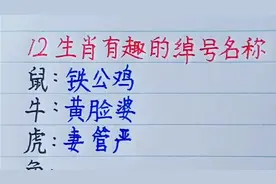 12生肖有趣的绰号名称
鼠:铁公鸡
牛:黄脸婆
虎:妻管严